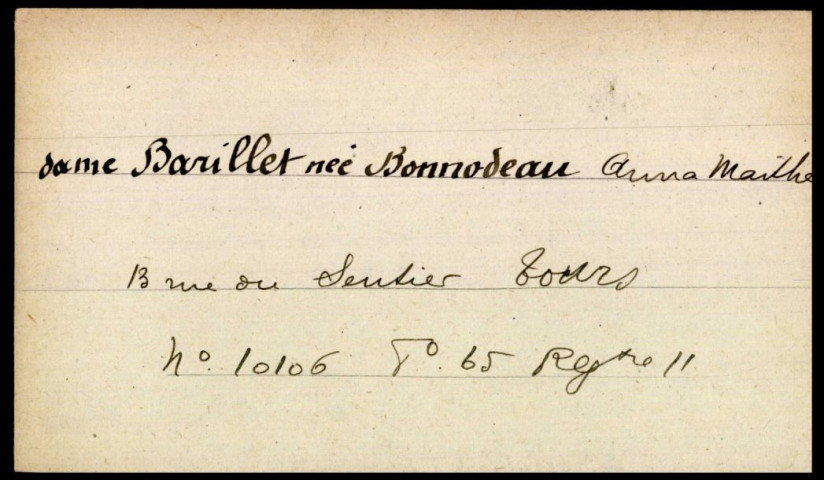 dame Barillet neé Bonnodeau Anna Marthe
13 rue du Sentier Tours
No. 10106 Fo. 65 Regtre 11